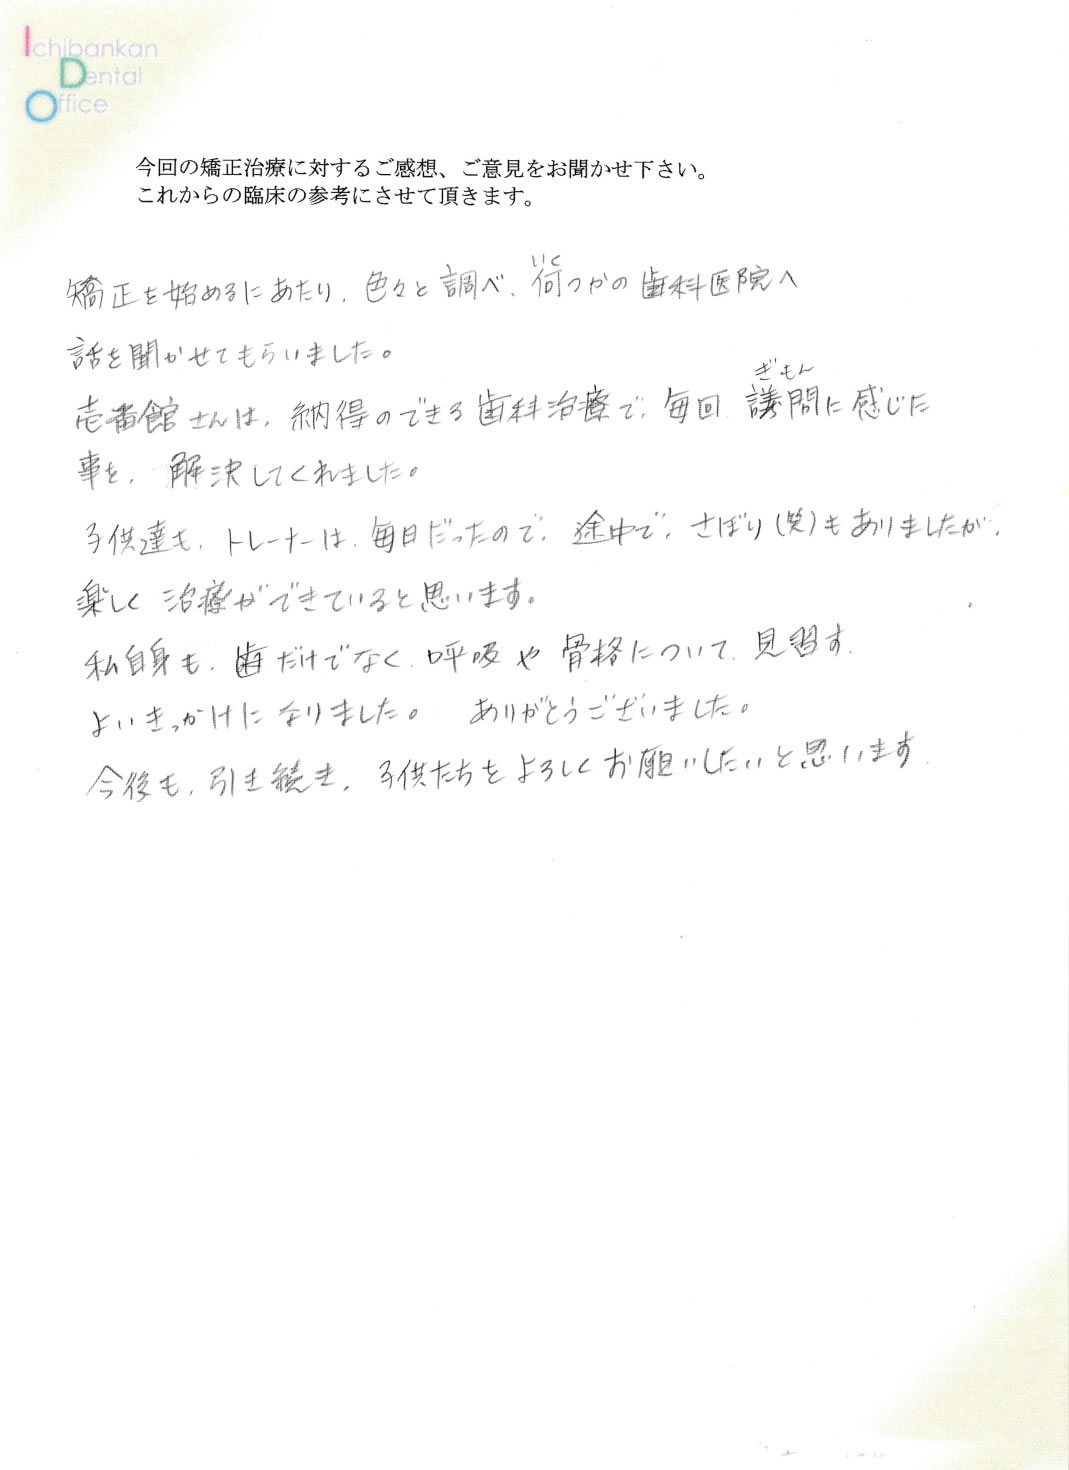 Ichibankan
Dental
Office
今回の矯正治療に対するご感想、ご意見をお聞かせ下さい。
これからの臨床の参考にさせて頂きます。
いく
矯正を始めるにあたり、色々と調べ、何つかの歯科医院へ
話を聞かせてもらいました。
ぎもん
壱番館さんは、納得のできる歯科治療で、毎回、議問に感じた
事を、解決してくれました。
子供達も、トレーナーは、毎日だったので、途中で、さぼり(笑)もありましたが、
楽しく 治療ができていると思います。
私自身も、歯だけでなく、呼吸や骨格について、見習す、
よいきっかけになりました。 ありがとうございました。
今後も、引き続き、子供たちをよろしくお願いしたいと思います.